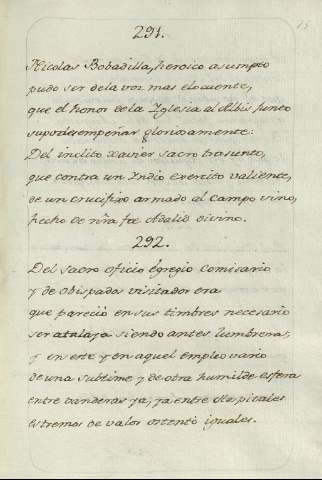 291.
Nicolas Bobadilla, heroico asumpto
pudo ser de la voz mas eloquente,
que el honor de la Yglesia al Albis junto
supo desempeñar gloriosamente:
Del inclito Xavier sacro trasunto,
que contra un Yndio exercito valiente,
de un crucifixo armado al campo vino,
hecho de nr̃a fee Adalid divino.
292.
Del sacro oficio Egregio Comisario
y de obispados visitador era
que pareció en sus timbres necesario
ser atalaya siendo antes lumbrera;
y en este y en aquel empleo vario
de una sublime y de otra humilde esfera
entre vanderas ya, ya entre Hospitales
extremos de valor ostentó iguales.